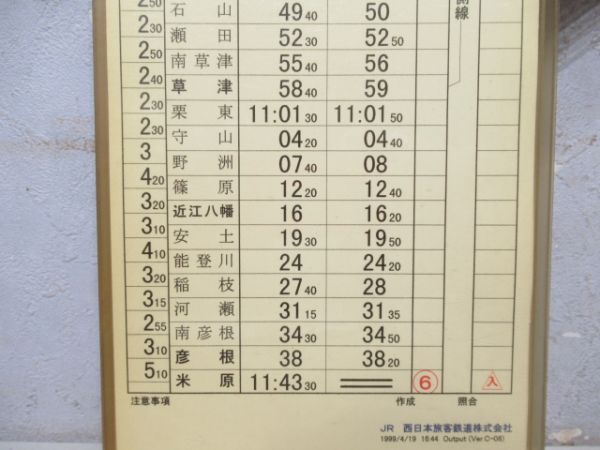 2 50 石山 49 40 50
側線
2 30 瀬田 52 30 52 50
2 50 南草津 55 40 56
2 40 草津 58 40 59
2 30 栗東 11:01 30 11:01 50
2 30 守山 04 20 04 40
3 野洲 07 40 08
4 20 篠原 12 20 12 40
3 20 近江八幡 16 16 20
3 10 安土 19 30 19 50
4 10 能登川 24 24 20
3 20 稲枝 27 40 28
3 15 河瀬 31 15 31 35
2 55 南彦根 34 30 34 50
3 10 彦根 38 38 20
5 10 米原 11:43 30 6 入
注意事項 作成 照合
JR 西日本旅客鉄道株式会社
1999/4/19 16:44 Output (Ver.C-06)